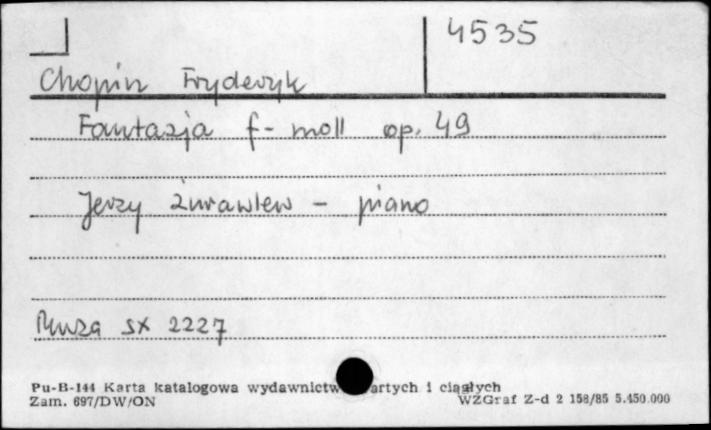 4535
Chopin Fryderyk
Fantazja f-moll op. 49
Jerzy Żurawlew - piano
Muza SX 2227
Pu-B-144 Karta katalogowa wydawnictw artych i ciągłych
Zam. 697/DW/ON WZGraf Z-d 2 158/85 5.450.000